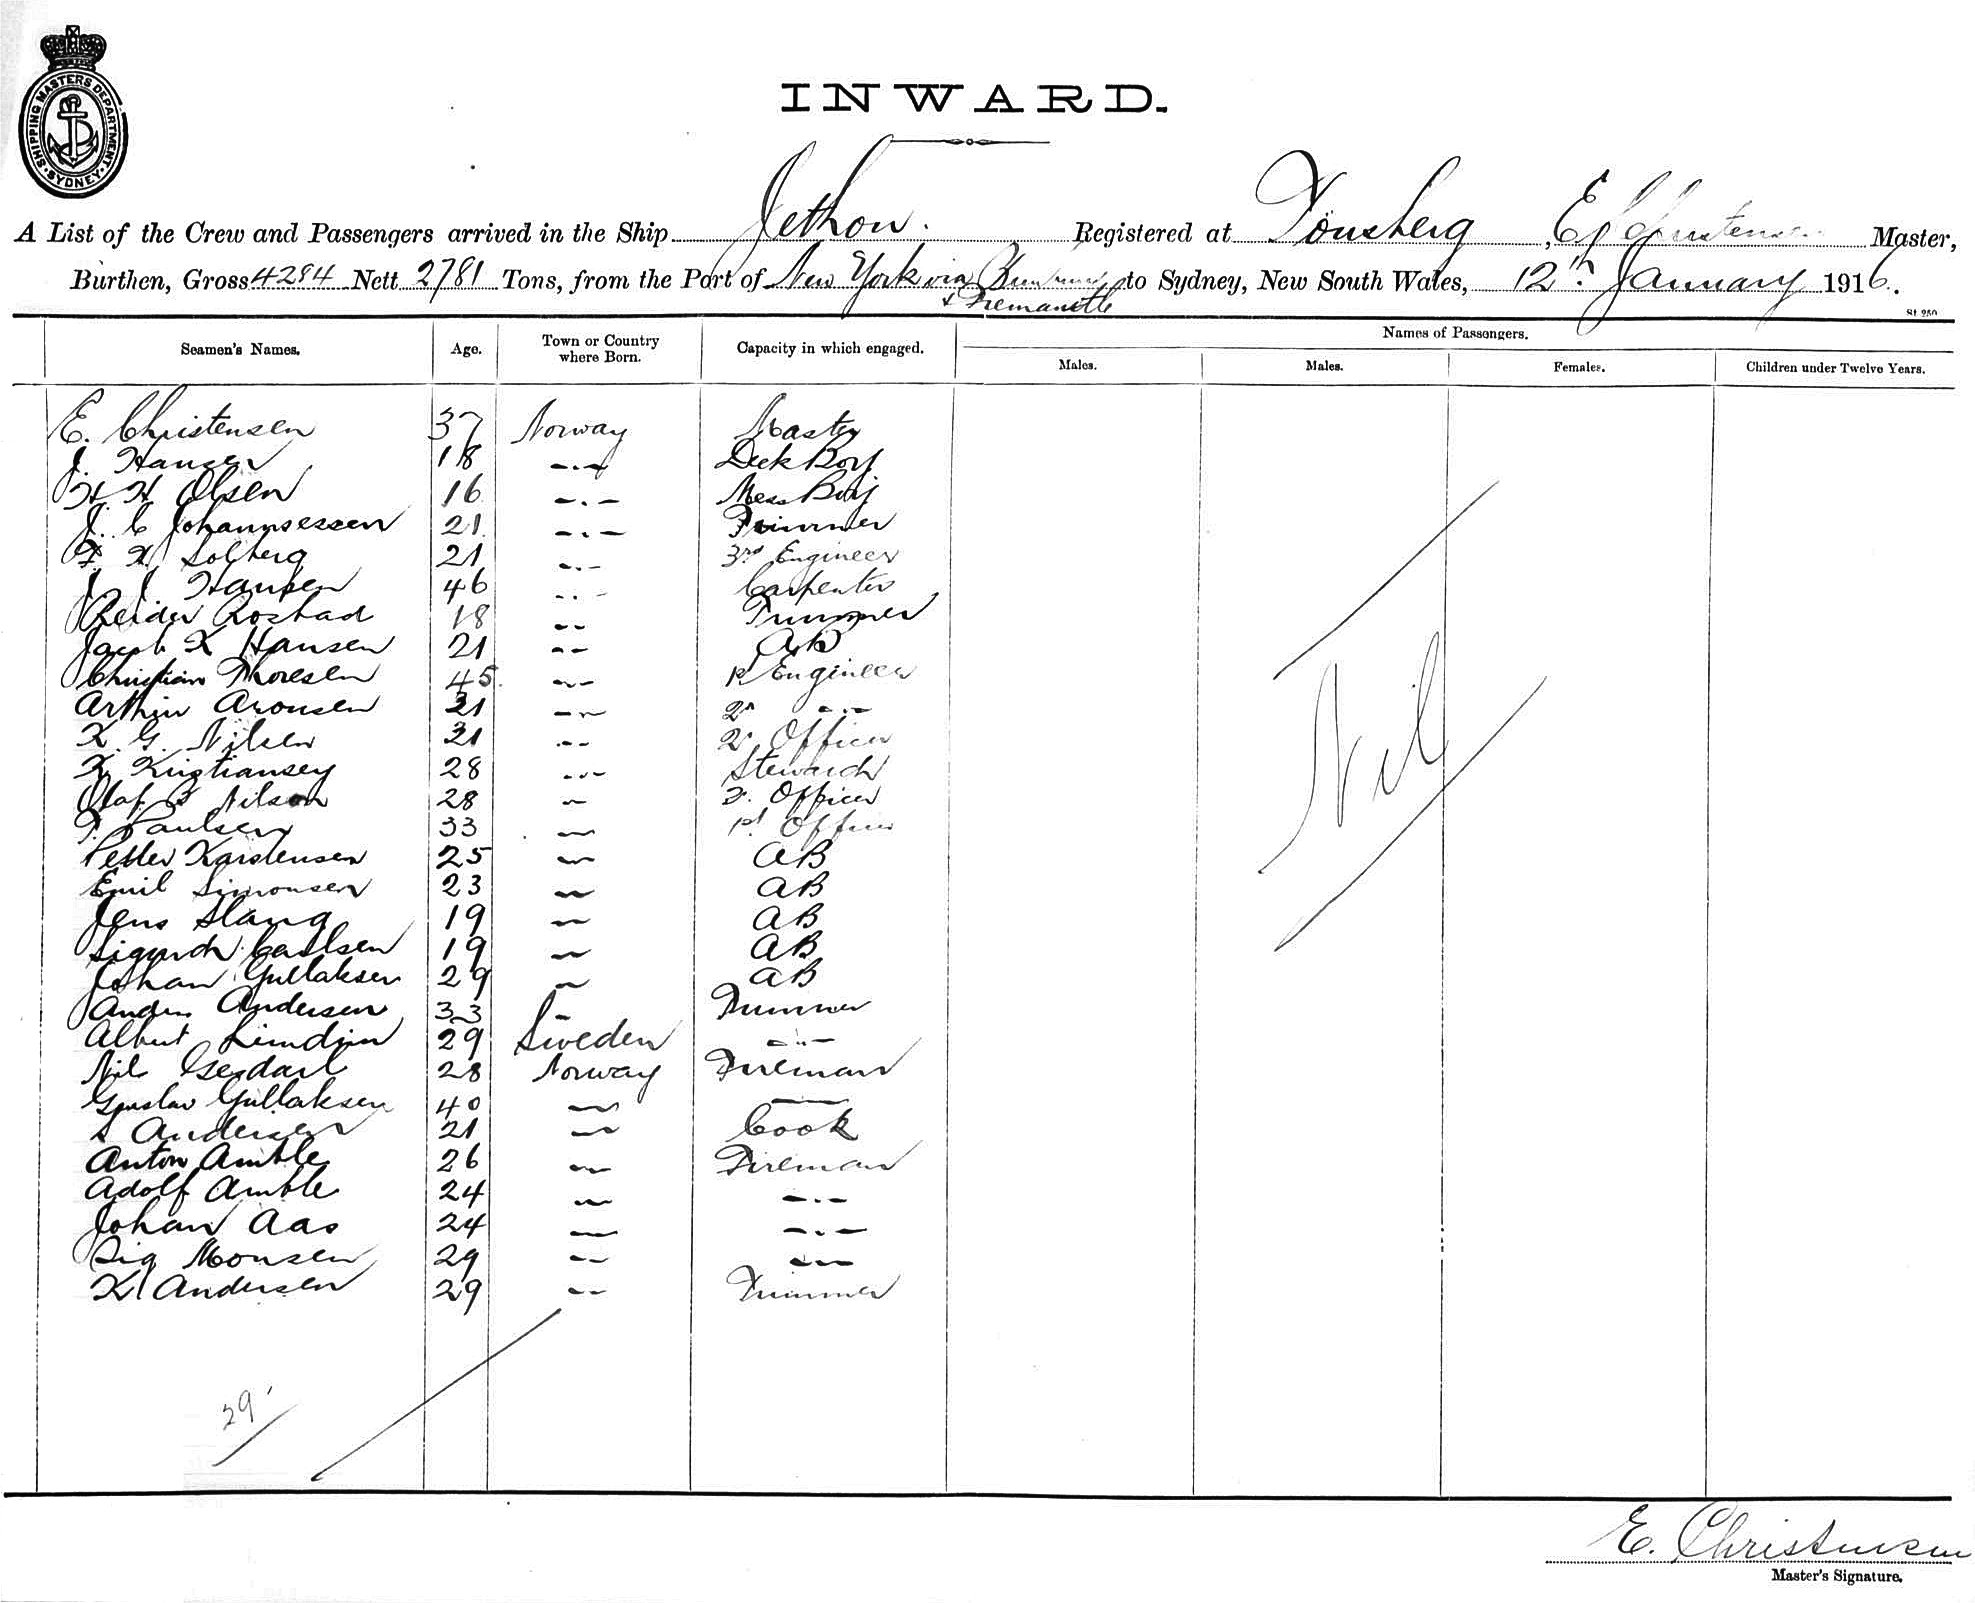 SHIPPING MASTERS DEPARTMENT
SYDNEY
INWARD.
A List of the Crew and Passengers arrived in the Ship Jethou. Registered at Tönsberg, E Christensen Master,
Burthen, Gross 4284 Nett 2781 Tons, from the Port of New York via to Sydney, New South Wales, 12th January 1916.
& Fremantle
St 250
Seamen's Names. Age. Town or Country where Born. Capacity in which engaged. Names of Passengers.
Males. Males. Females. Children under Twelve Years.
E. Christensen 37 Norway Master
J. Hansen 18 -.- Deck Boy
H. H Olsen 16 -.- Mess Boy
J. C Johannsessen 21 -.- Trimmer
F. H Solberg 21 -.- 3rd Engineer
J. J. Hansen 46 -.- Carpenter
Reider Rostad 18 -- Trimmer
Jacob K Hansen 21 -- AB
Christian Thoresen 45 -- 1st Engineer
Arthur Aronsen 31 -- 2n -.-
K. G. Nilsen 31 -- 2n Officer
K Kristiansen 28 -.- Steward
Olaf Nilsen 28 - 3. Officer
Paulsen 33 - 1st Officer
Petter Karstensen 25 - AB
Emil Simonsen 23 - AB
Jens Slang 19 - AB
Sigurd Carlsen 19 - AB
Johan Gullaksen 29 - AB
Anders Andersen 33 - Trimmer
Albert 29 Sweden -.-
Nils 28 Norway Fireman
Gustav Gullaksen 40 - —
S Andersen 21 - Cook
Anton Amble 26 - Fireman
Adolf Amble 24 - -.-
Johan Aas 24 - -.-
Sig Monsen 29 -- -.-
K Andersen 29 -- Trimmer
Nil
29
E. Christensen
Master's Signature.